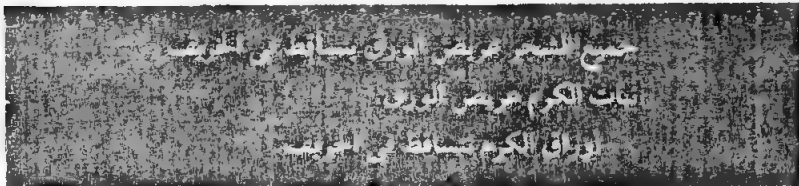 جميع الشجر عريض الورق يتساقط في الخريف
نبات الكرم عريض الورق
أوراق الكرم تتساقط في الخريف